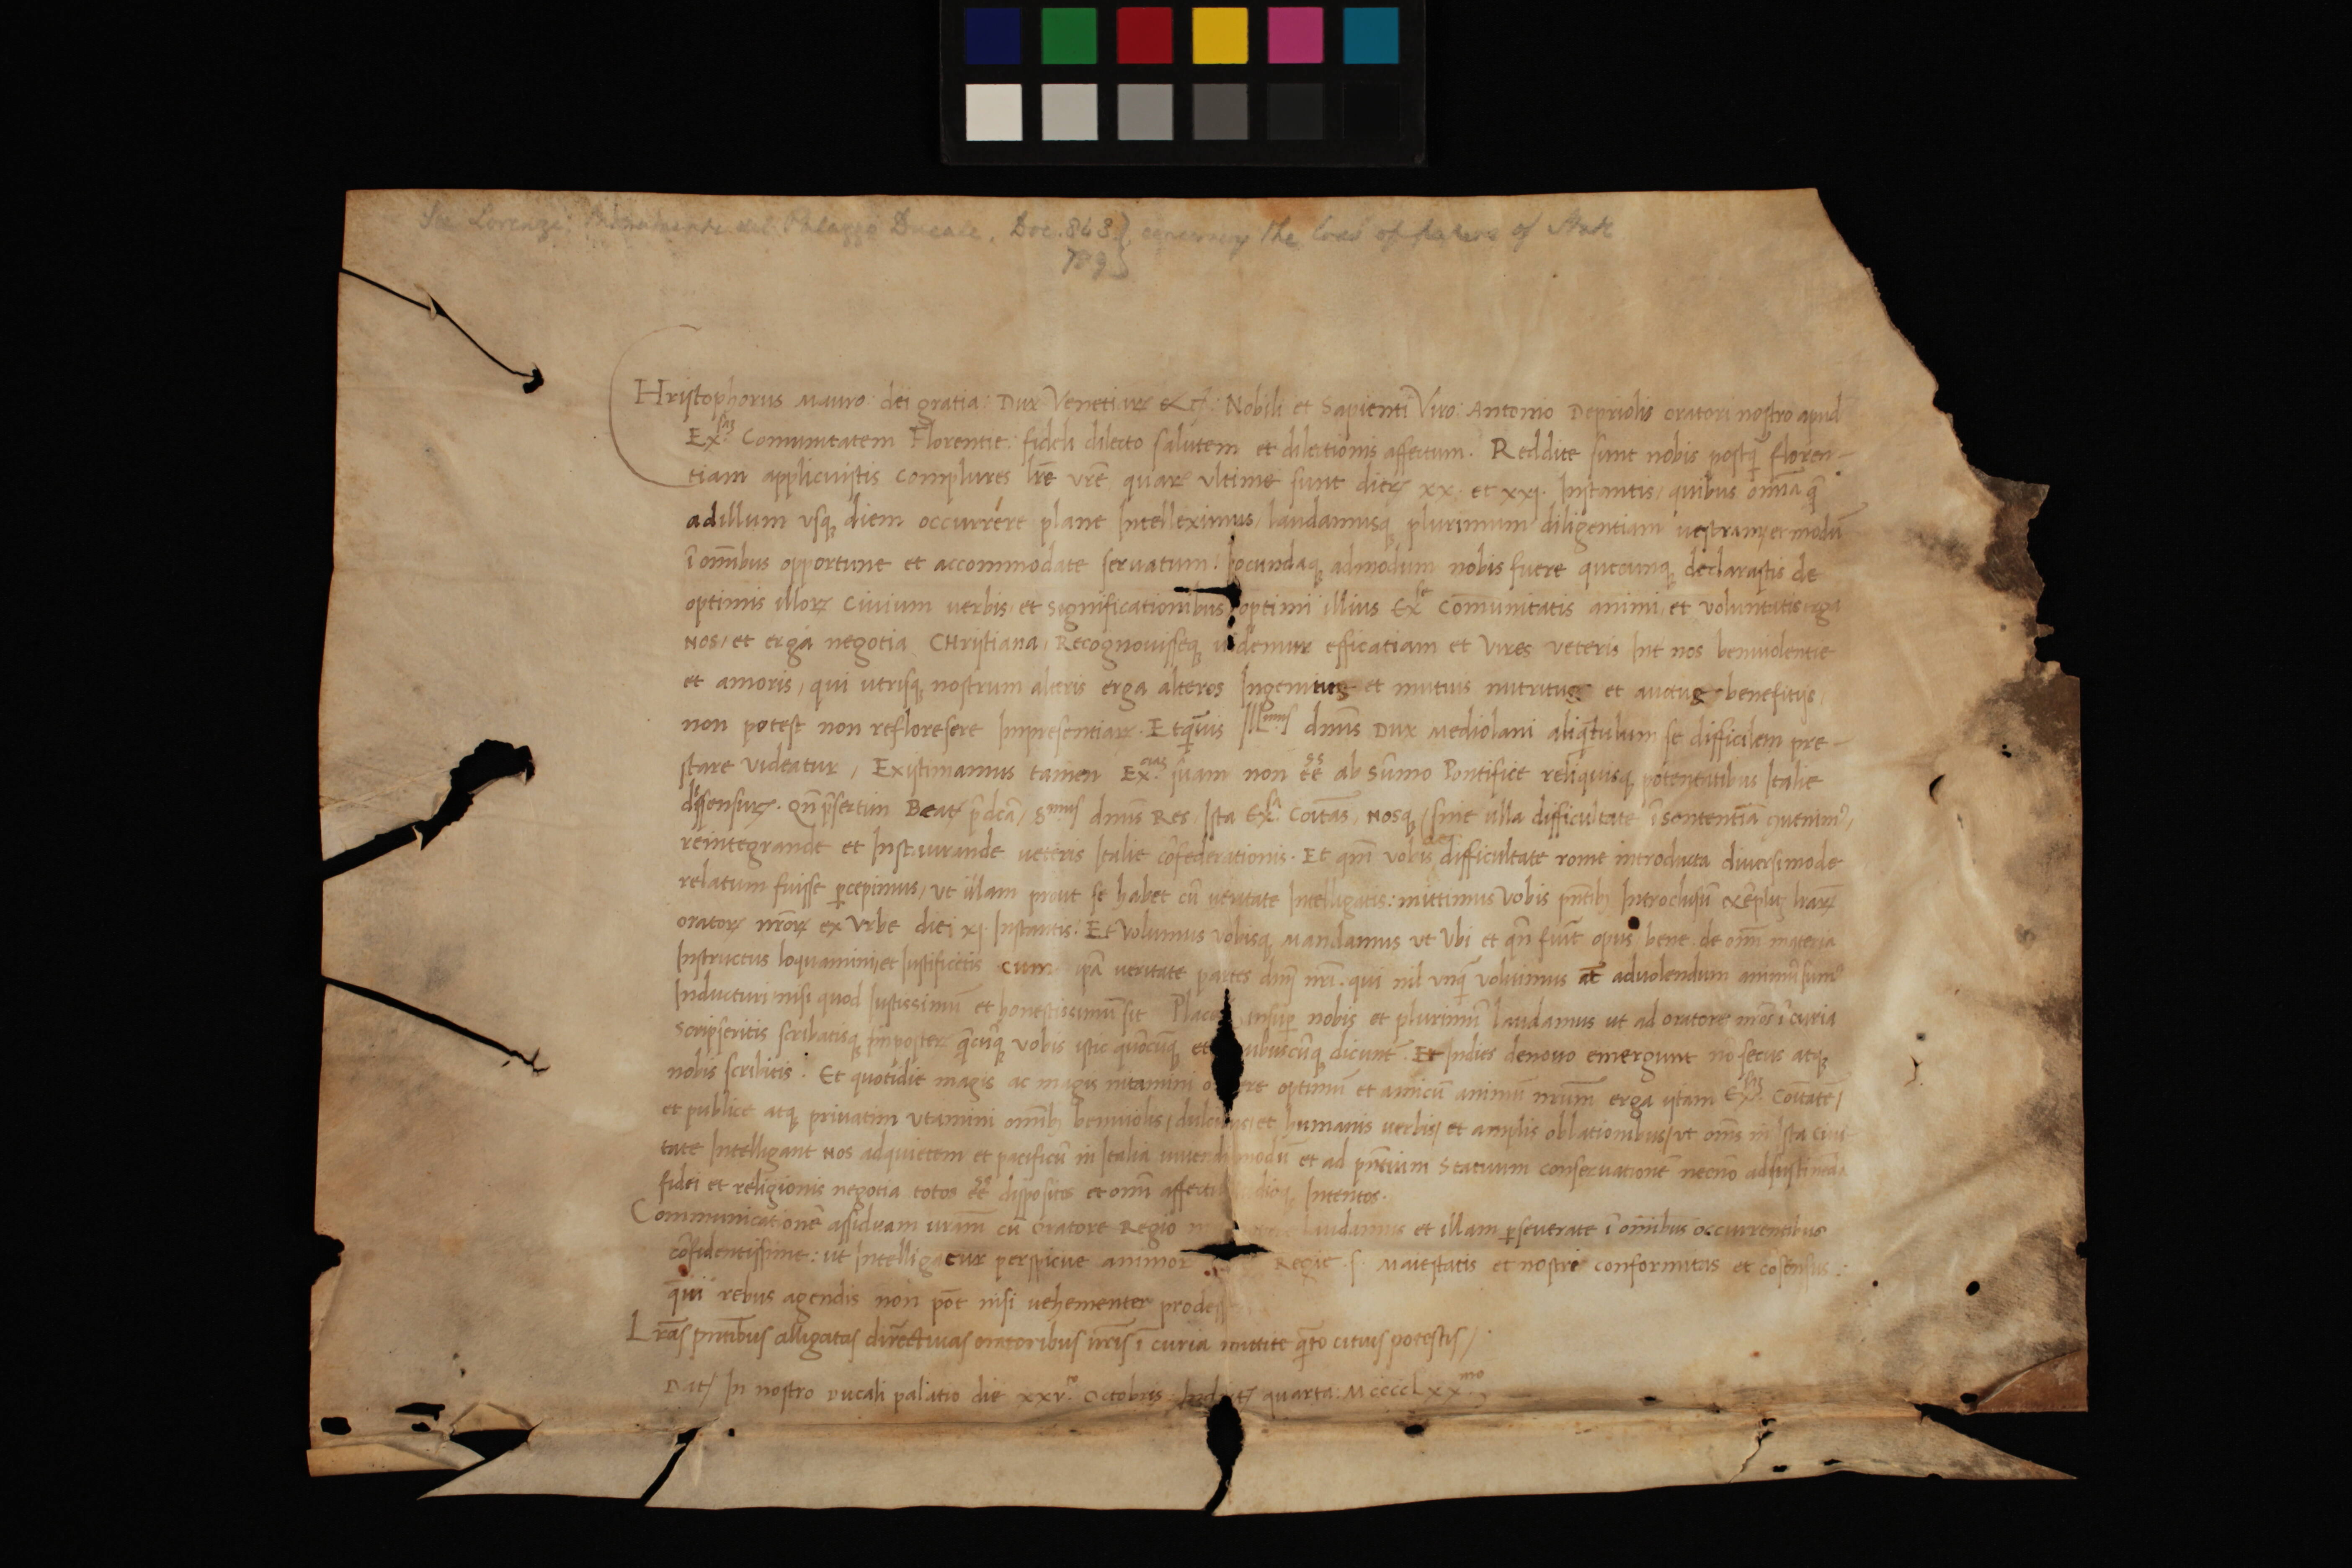 See Lorenzi, Monumenti del Palazzo Ducale. Doc. 863 } concerning the loss of papers of State
789 }
CHristophorus Mauro dei gratia Dux Venetiarꝝ &cͣ. Nobili et Sapienti Viro Antonio Depriolis oratori nostro apud
Exˢᵃᵐ Comunitatem Florentie: fideli dilecto salutem et dilectionis affectum. Reddite sunt nobis postq̄ floren-
tiam applicuistis complures lr̄e vr̄e quarꝝ ultime sunt dierꝝ xx. et xxj. Instantis, quibus om̄ia q̄
ad illum vsq; diem occurrére plane Intelleximus, laudamusq; plurimum diligentiam vestram, et modū
ī om̄ibus opportune et accommodate servatum. Iocundaq; admodum nobis fuere quecunq; declarastis de
optimis illorꝝ Civium verbis, et significationibus optimi illius Exˡᵉ Com̄unitatis animi, et voluntatis erga
Nos, et ergá negotia CHristiana, Recognovisseq; videmur efficatiam et Vires veteris Int̄ nos benivolentie
et amoris, qui utrisq; nostrum alteris erga alteros Ingenitus et mutuis nutritus et auctus benefitijs,
non potest non reflorescere Inpresentiarꝝ. Et q̄uis Illᵐᵘˢ dn̄us Dux Mediolani aliq̄tulum se difficilem pre-
stare videatur, Existimamus tamen Exᵗⁱᵃᵐ suam non eē ab Sūmo Pontifice reliquisq; potentatibus Italie
dissensurꝝ. Qn̄ p̄sertim Beatꝝ p̄dcā, Sᵐᵘˢ dn̄us Rex, Ista Exˢᵃ Cōitas, Nosq; sine ulla difficultate ī sententiā cōvenim9,
reintegrande et Instaurande veteris Italie cōfederationis. Et qm̄ vobis de difficultate rome introducta diversimode
relatum fuisse ꝑcepimus, ut illam prout se habet cū veritate Intelligatis: mittimus Vobis pn̄tib; Introclusū exēplū lrarꝝ
oratorꝝ nr̄orꝝ ex Vrbe diei xj. Instantis. Et Volumus vobisq; Mandamus ut Vbi et qn̄ fuīt opus, bene de om̄i materia
Instructus loquamini, et Iustificetis cum ip̄a veritate partes dnij nr̄i. qui nil vnq̄ voluimus at advolendum animū sum9
Inducturi, nisi quod Iustissimū et honestissimū sit. Placet insuꝑ nobis et plurimū laudamus ut ad oratores nr̄os ī curia
scripseritis scribatisq; Imposterꝝ q̄cūq; vobis istic quocūq; et quibuscūq; dicunt. Et Indies denovo emergunt nō secus atq;
nobis scribitis. Et quotidie magis ac magis nitamini ostendere optimū et amicū animū nr̄um erga istam Exˢᵃᵐ Cōitatē,
et publice atq; privatim utamini om̄ib; benivolis, dulcibus, et humanis verbis, et amplis oblationibus, ut om̄s in Ista Civi-
tate Intelligant Nos ad quietem et pacificū in Italia vivendi modū et ad pn̄tium Statuum conservationē necnō ad sustinenda
fidei et religionis negotia totos eē dispositos et om̄i affectu studioq; Intentos.
Communicationē assiduam vr̄am cū Oratore Regio laudamus et illam ꝑseverate ī om̄ibus occurrentibus
cōfidentissime: ut Intelligatur perspicue animorꝝ Regie .S. Maiestatis et nostri conformitas et cōsensus:
q̄ vii rebus agendis non pōt nisi vehementer prodesse
Lr̄as pn̄tibus alligatas directivas oratoribus nr̄is ī curia mittite q̄to citius potestis,
Datꝝ In nostro Ducali palatio die xxvᵗᵒ. Octobris Indictꝝ quarta: MccccLxxᵐᵒ